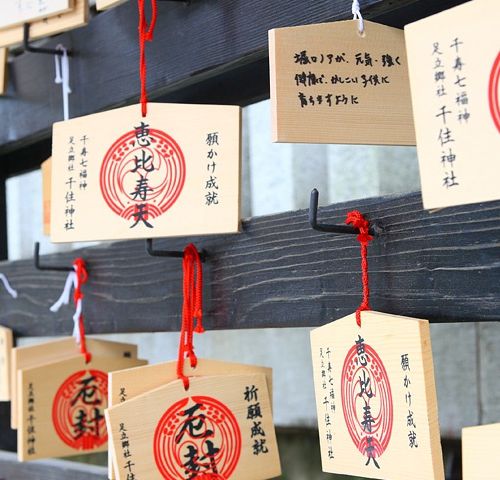 堀口ノアが、元気に強く
健康で、かしこい子供に
育ちますように
千寿七福神
足立郷社 千住神社
願かけ成就
恵比寿天
千寿七福神
足立郷社 千住神社
願かけ成就
恵比寿天
千寿七福神
足立郷社 千住神社
厄封
足立郷社 千住神社
祈願成就
厄封
足立郷社 千住神社